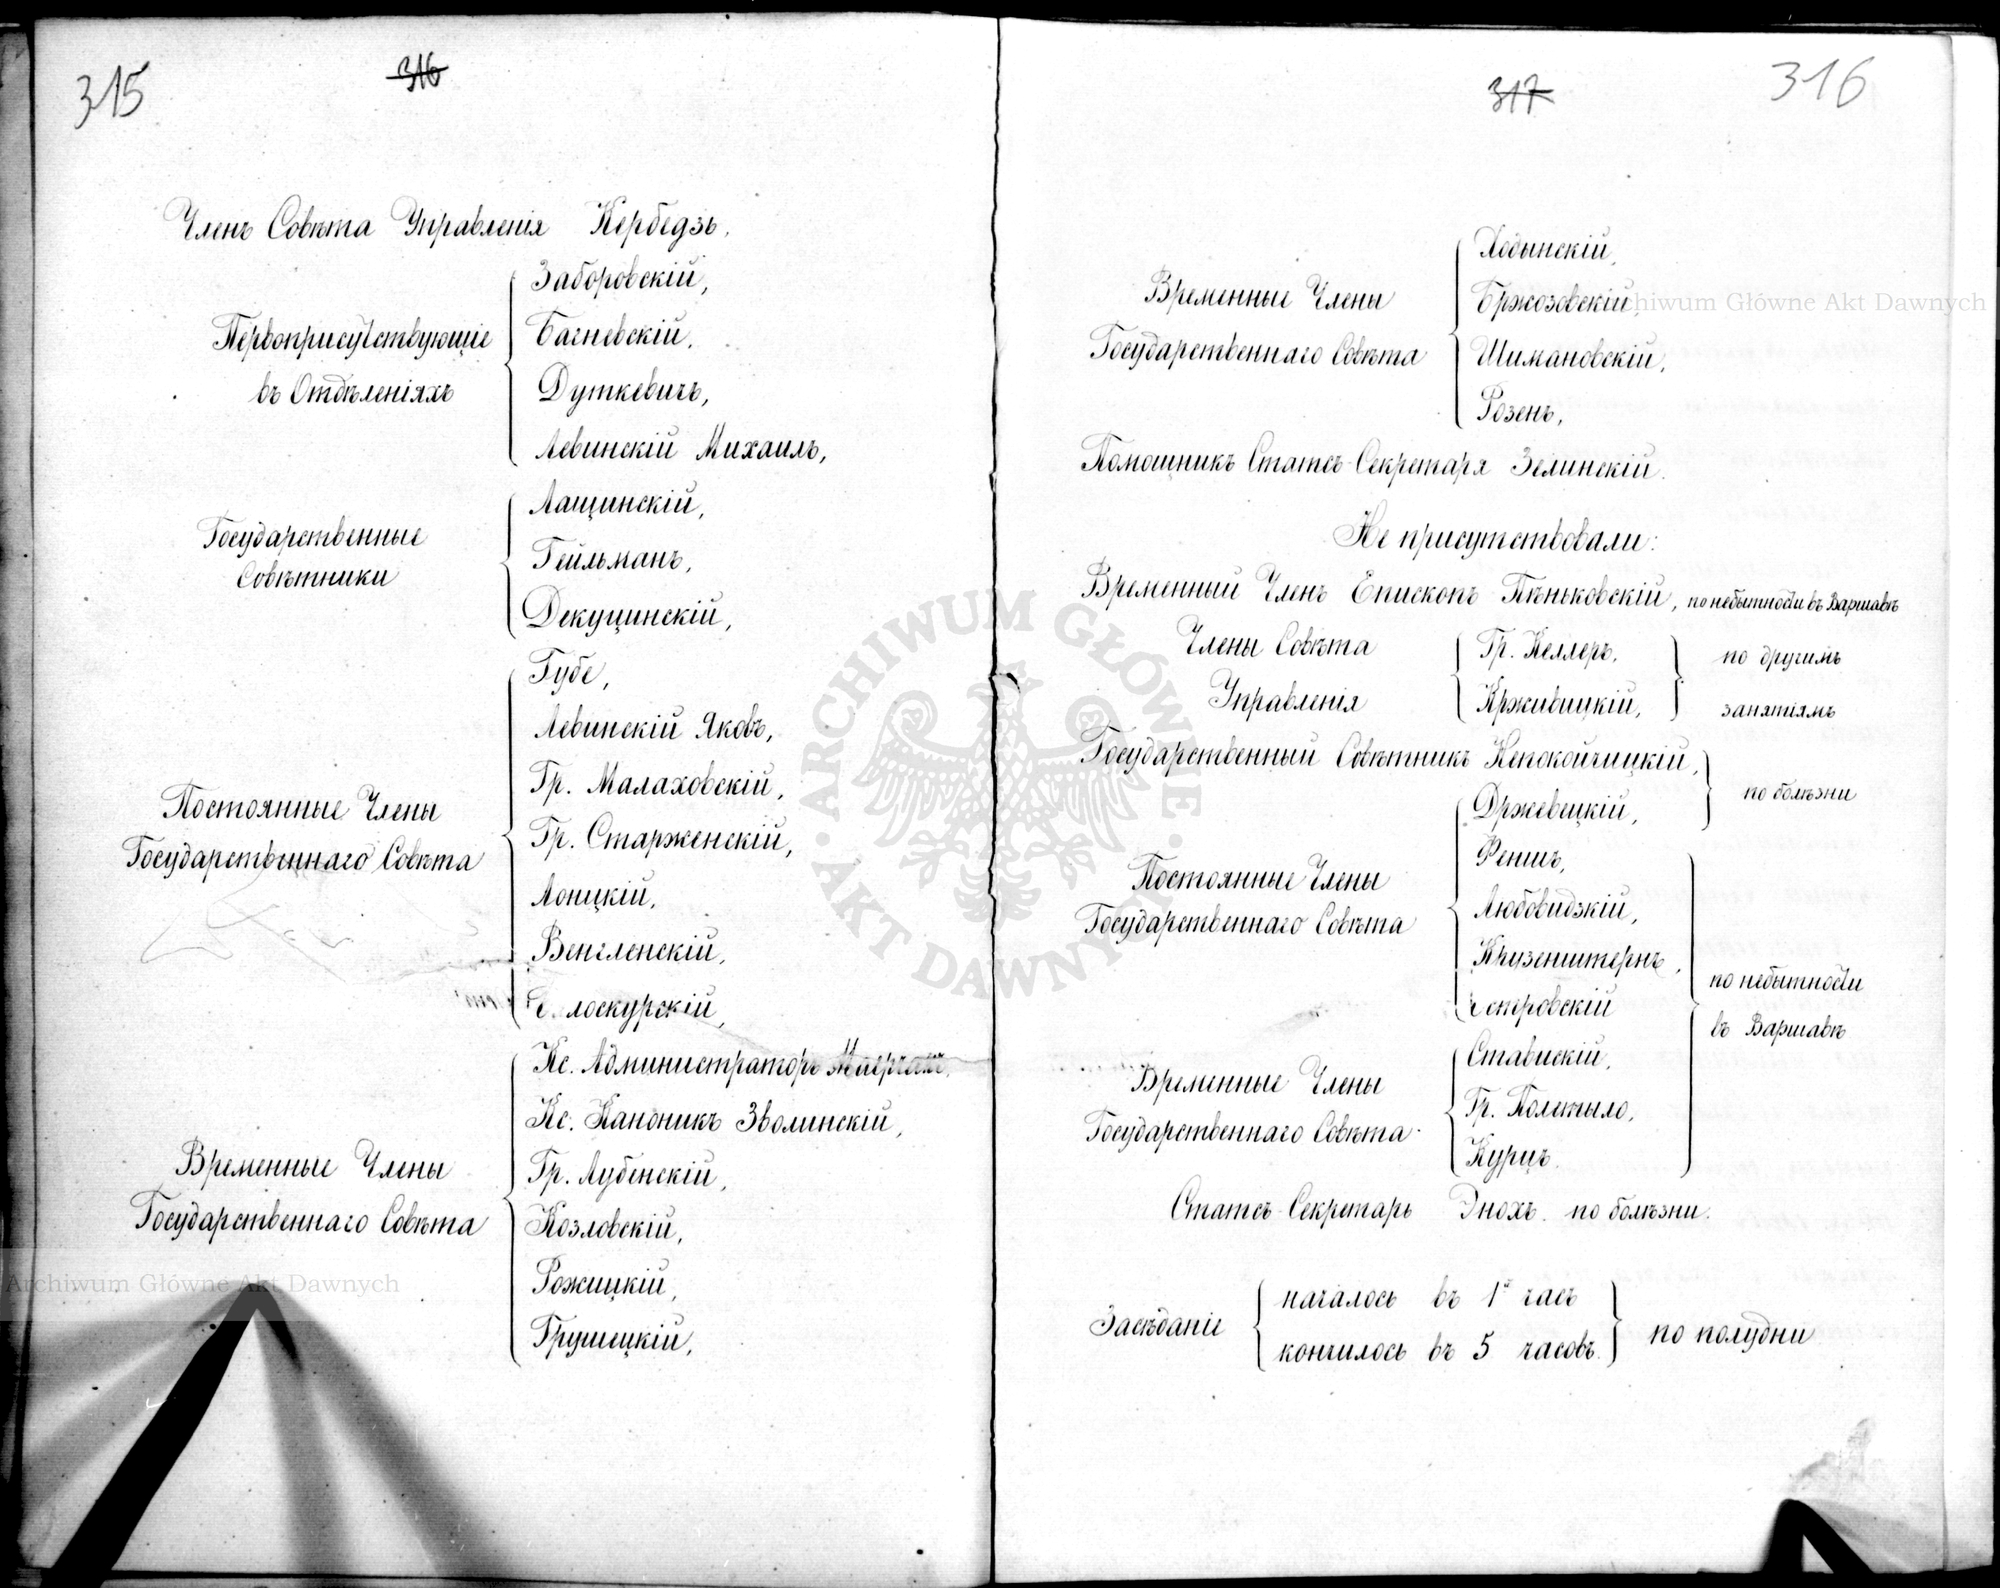 315
316
Членъ Совѣта Управленія Кербедзь,
Первоприсутствующіе
въ Отдѣленіяхъ
Заборовскій,
Багневскій,
Дуткевичъ,
Левинскій Михаилъ,
Государственные
Совѣтники
Лащинскій,
Гейльманъ,
Декуцинскій,
Постоянные Члены
Государственнаго Совѣта
Губе,
Левинскій Яковъ,
Гр. Малаховскій,
Гр. Старженскій,
Лонцкій,
Венгленскій,
лоскурскій,
Временные Члены
Государственнаго Совѣта
Кс. Администраторъ
Кс. Каноникъ Зволинскій,
Гр. Лубенскій,
Козловскій,
Рожицкій,
Грушецкій,
317
316
Временные Члены
Государственнаго Совѣта
Ходынскій,
Бржозовскій,
Шимановскій,
Розенъ,
Помощникъ Статсъ-Секретаря Зелинскій.
Не присутствовали:
Временный Членъ Епископъ Пѣньковскій, по небытности въ Варшавѣ
Члены Совѣта
Управленія
Гр. Келлеръ,
Крживицкій,
по другимъ
занятіямъ
Государственный Совѣтникъ Непокойчицкій,
по болѣзни
Постоянные Члены
Государственнаго Совѣта
Држевецкій,
Феншъ,
Любовидзкій,
Крузенштернъ,
стровскій
по небытности
въ Варшавѣ
Временные Члены
Государственнаго Совѣта
Ставискій,
Гр. Полетыло,
Курцъ.
Статсъ-Секретарь Энохъ. по болѣзни.
Засѣданіе
началось въ 1й часъ
кончилось въ 5 часовъ
по полудни
ARCHIWUM GŁÓWNE AKT DAWNYCH
Archiwum Główne Akt Dawnych
Archiwum Główne Akt Dawnych